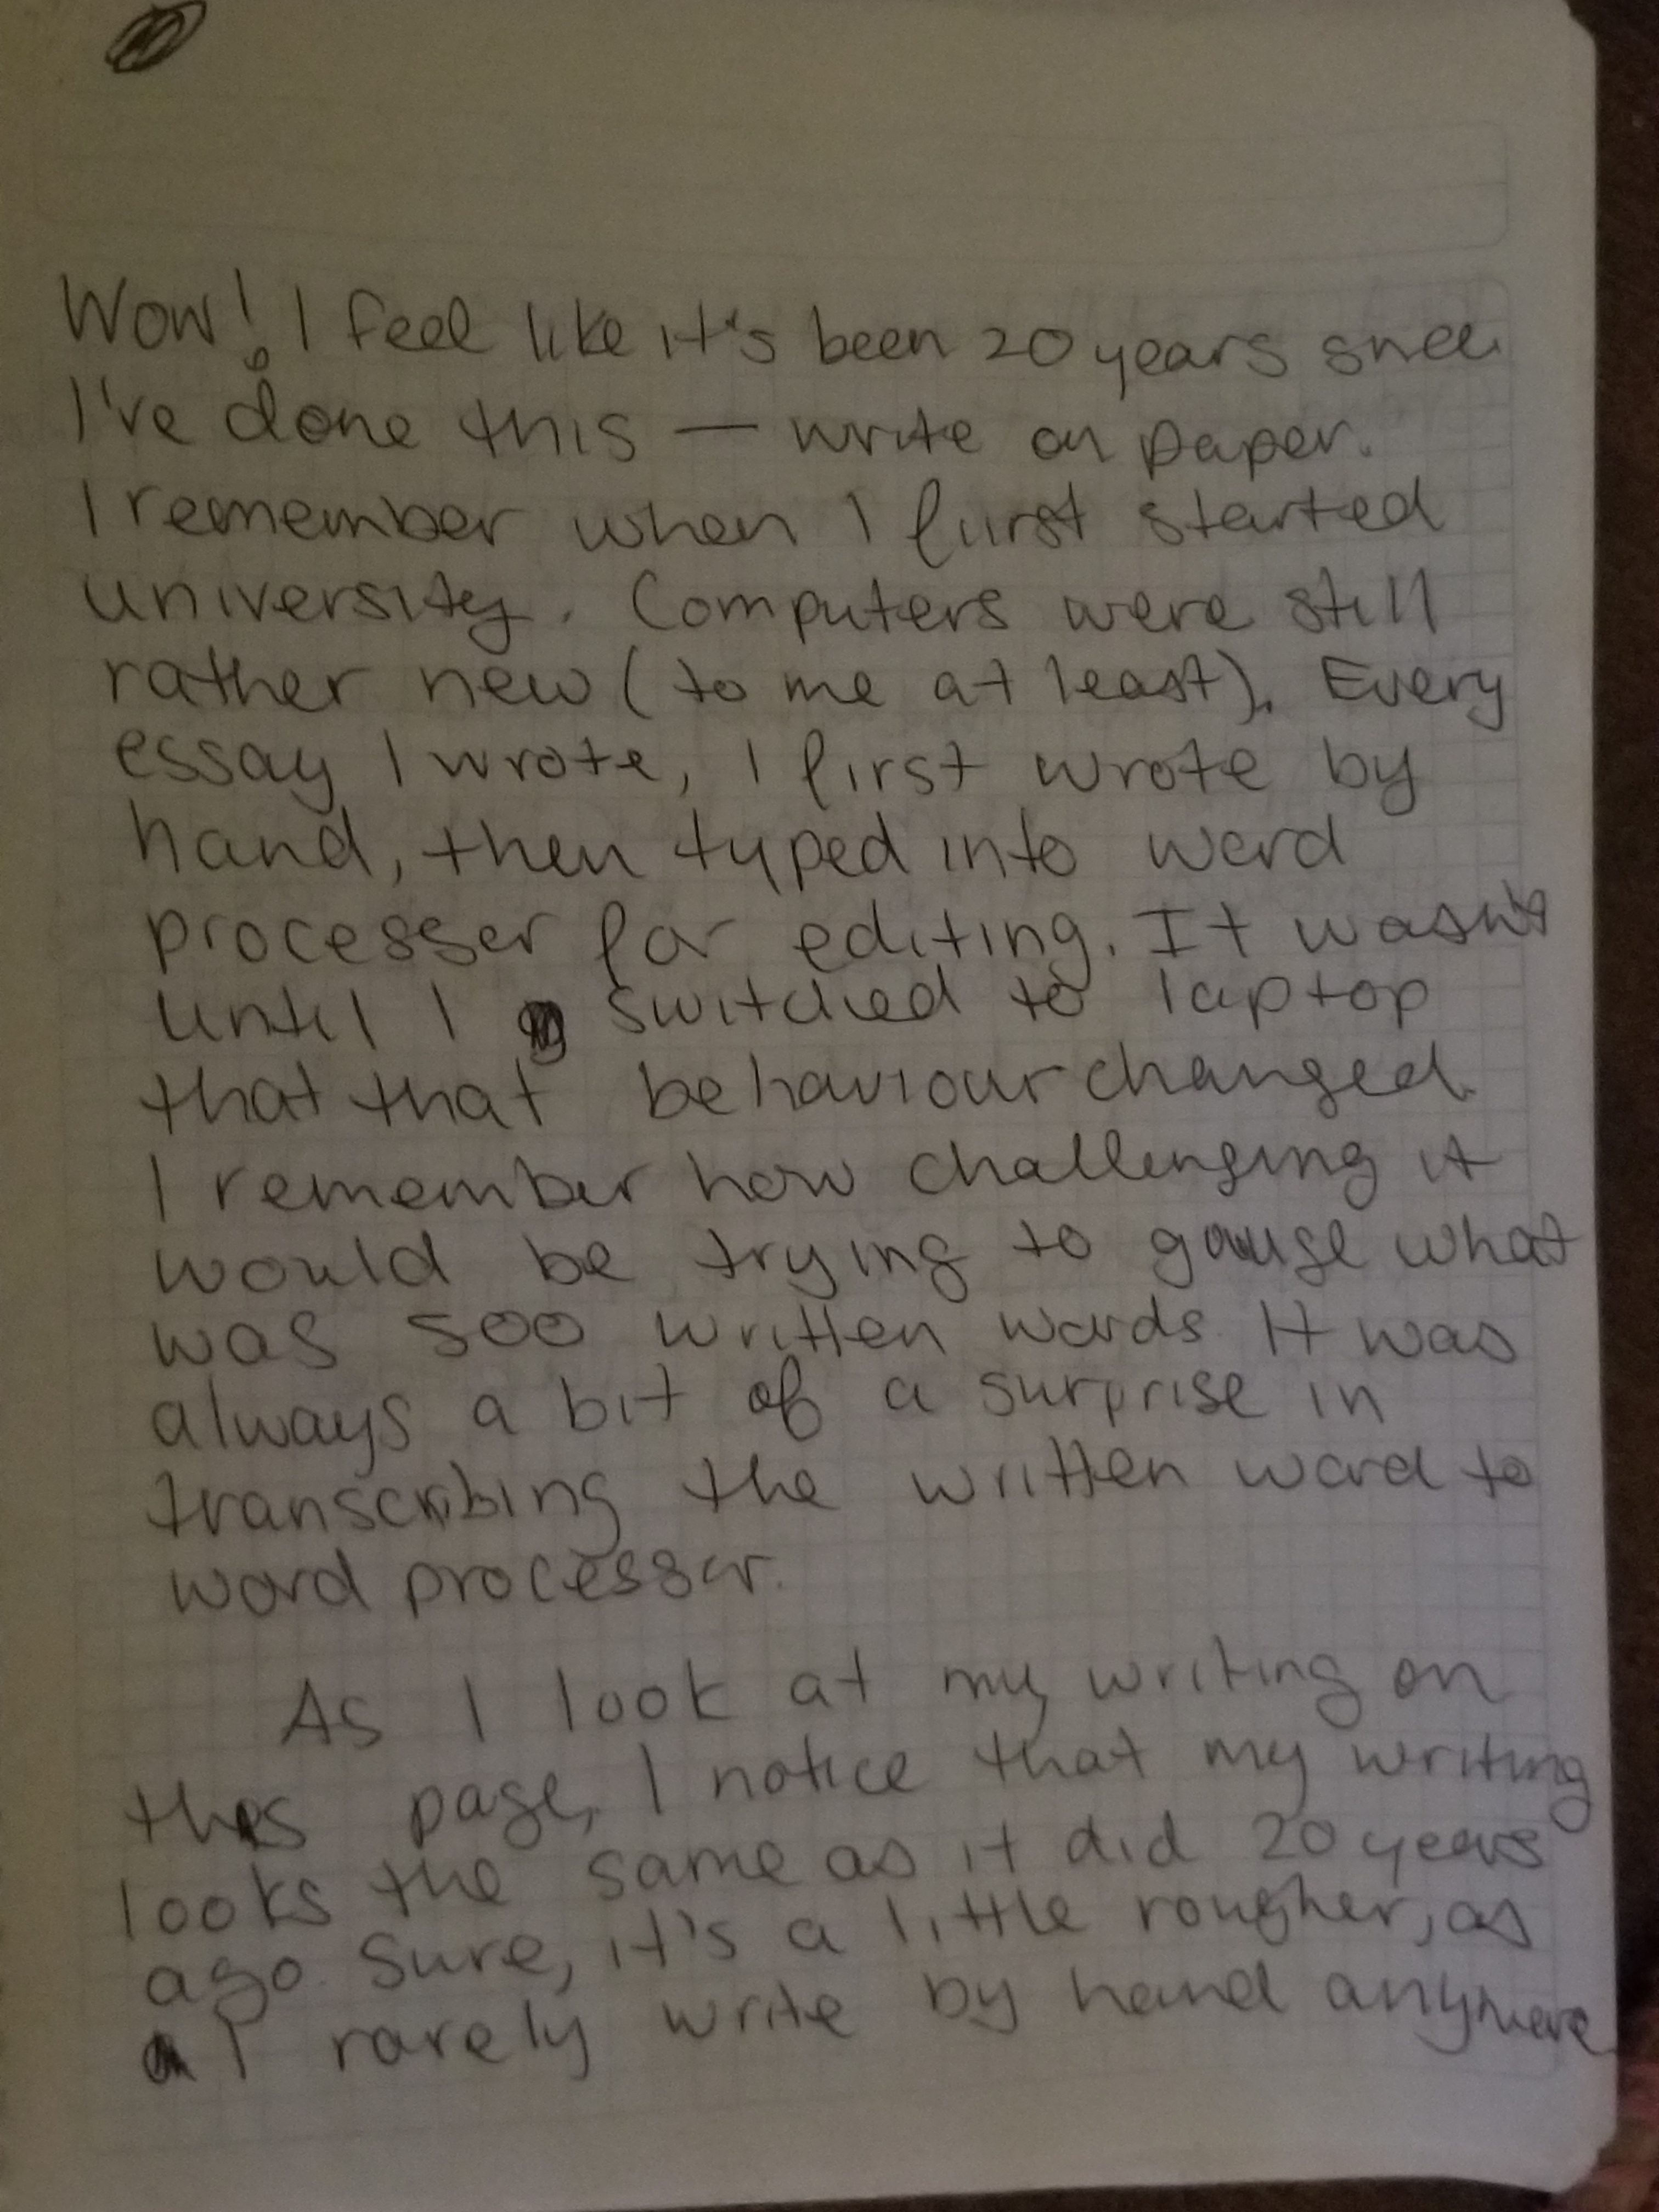 Wow! I feel like it's been 20 years since
I've done this — write on paper.
I remember when I first started
university. Computers were still
rather new (to me at least). Every
essay I wrote, I first wrote by
hand, then typed into word
processer for editing. It wasn't
until I switched to laptop
that that behaviour changed.
I remember how challenging it
would be trying to gauge what
was 500 written words. It was
always a bit of a surprise in
transcribing the written word to
word processer.
As I look at my writing on
this page, I notice that my writing
looks the same as it did 20 years
ago. Sure, it's a little rougher, as
I rarely write by hand anymore